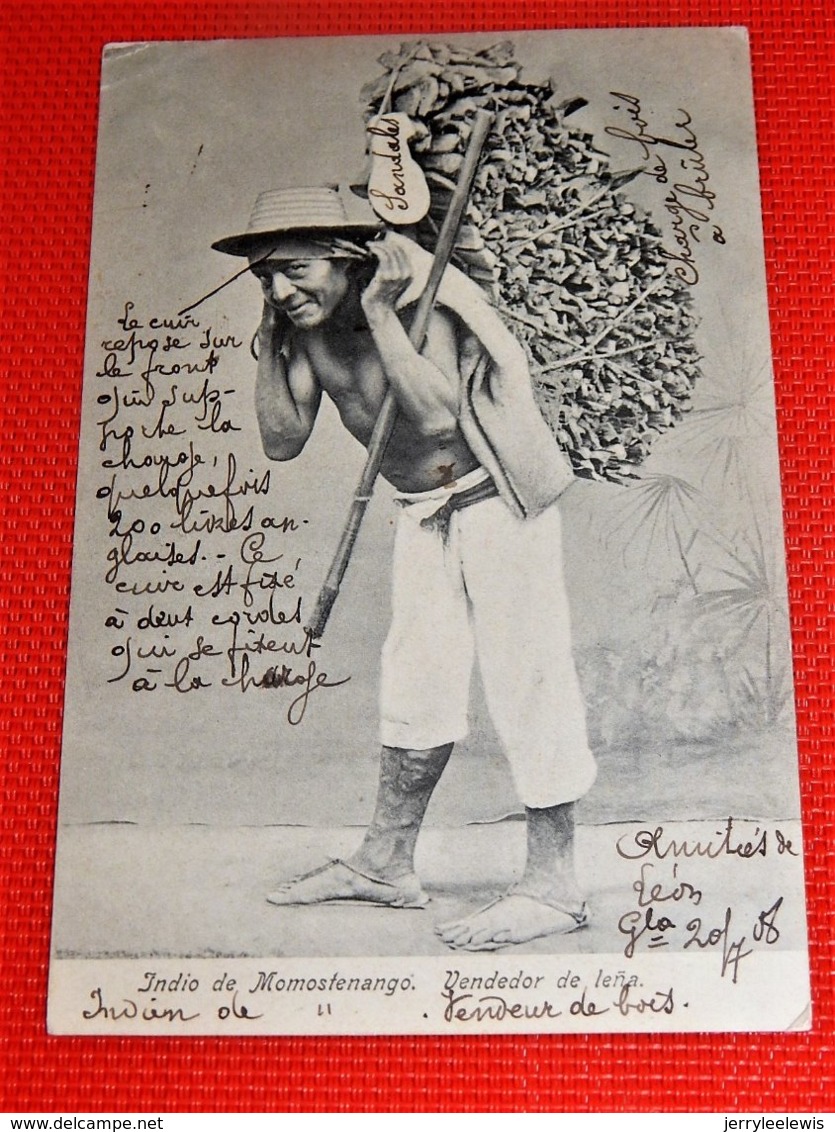 Sandales
Charge de bois
a brûler
Le cuir
repose sur
le front
qui sup-
porte la
charge,
quelquefois
200 livres an-
glaises. - Ce
cuir est fixé
à deux cordes
qui se fixent
à la charge
Amitiés de
Léon
Gla 20/7 08
Indio de Momostenango. Vendedor de leña.
Indien de " . Vendeur de bois.
jerryleelewis